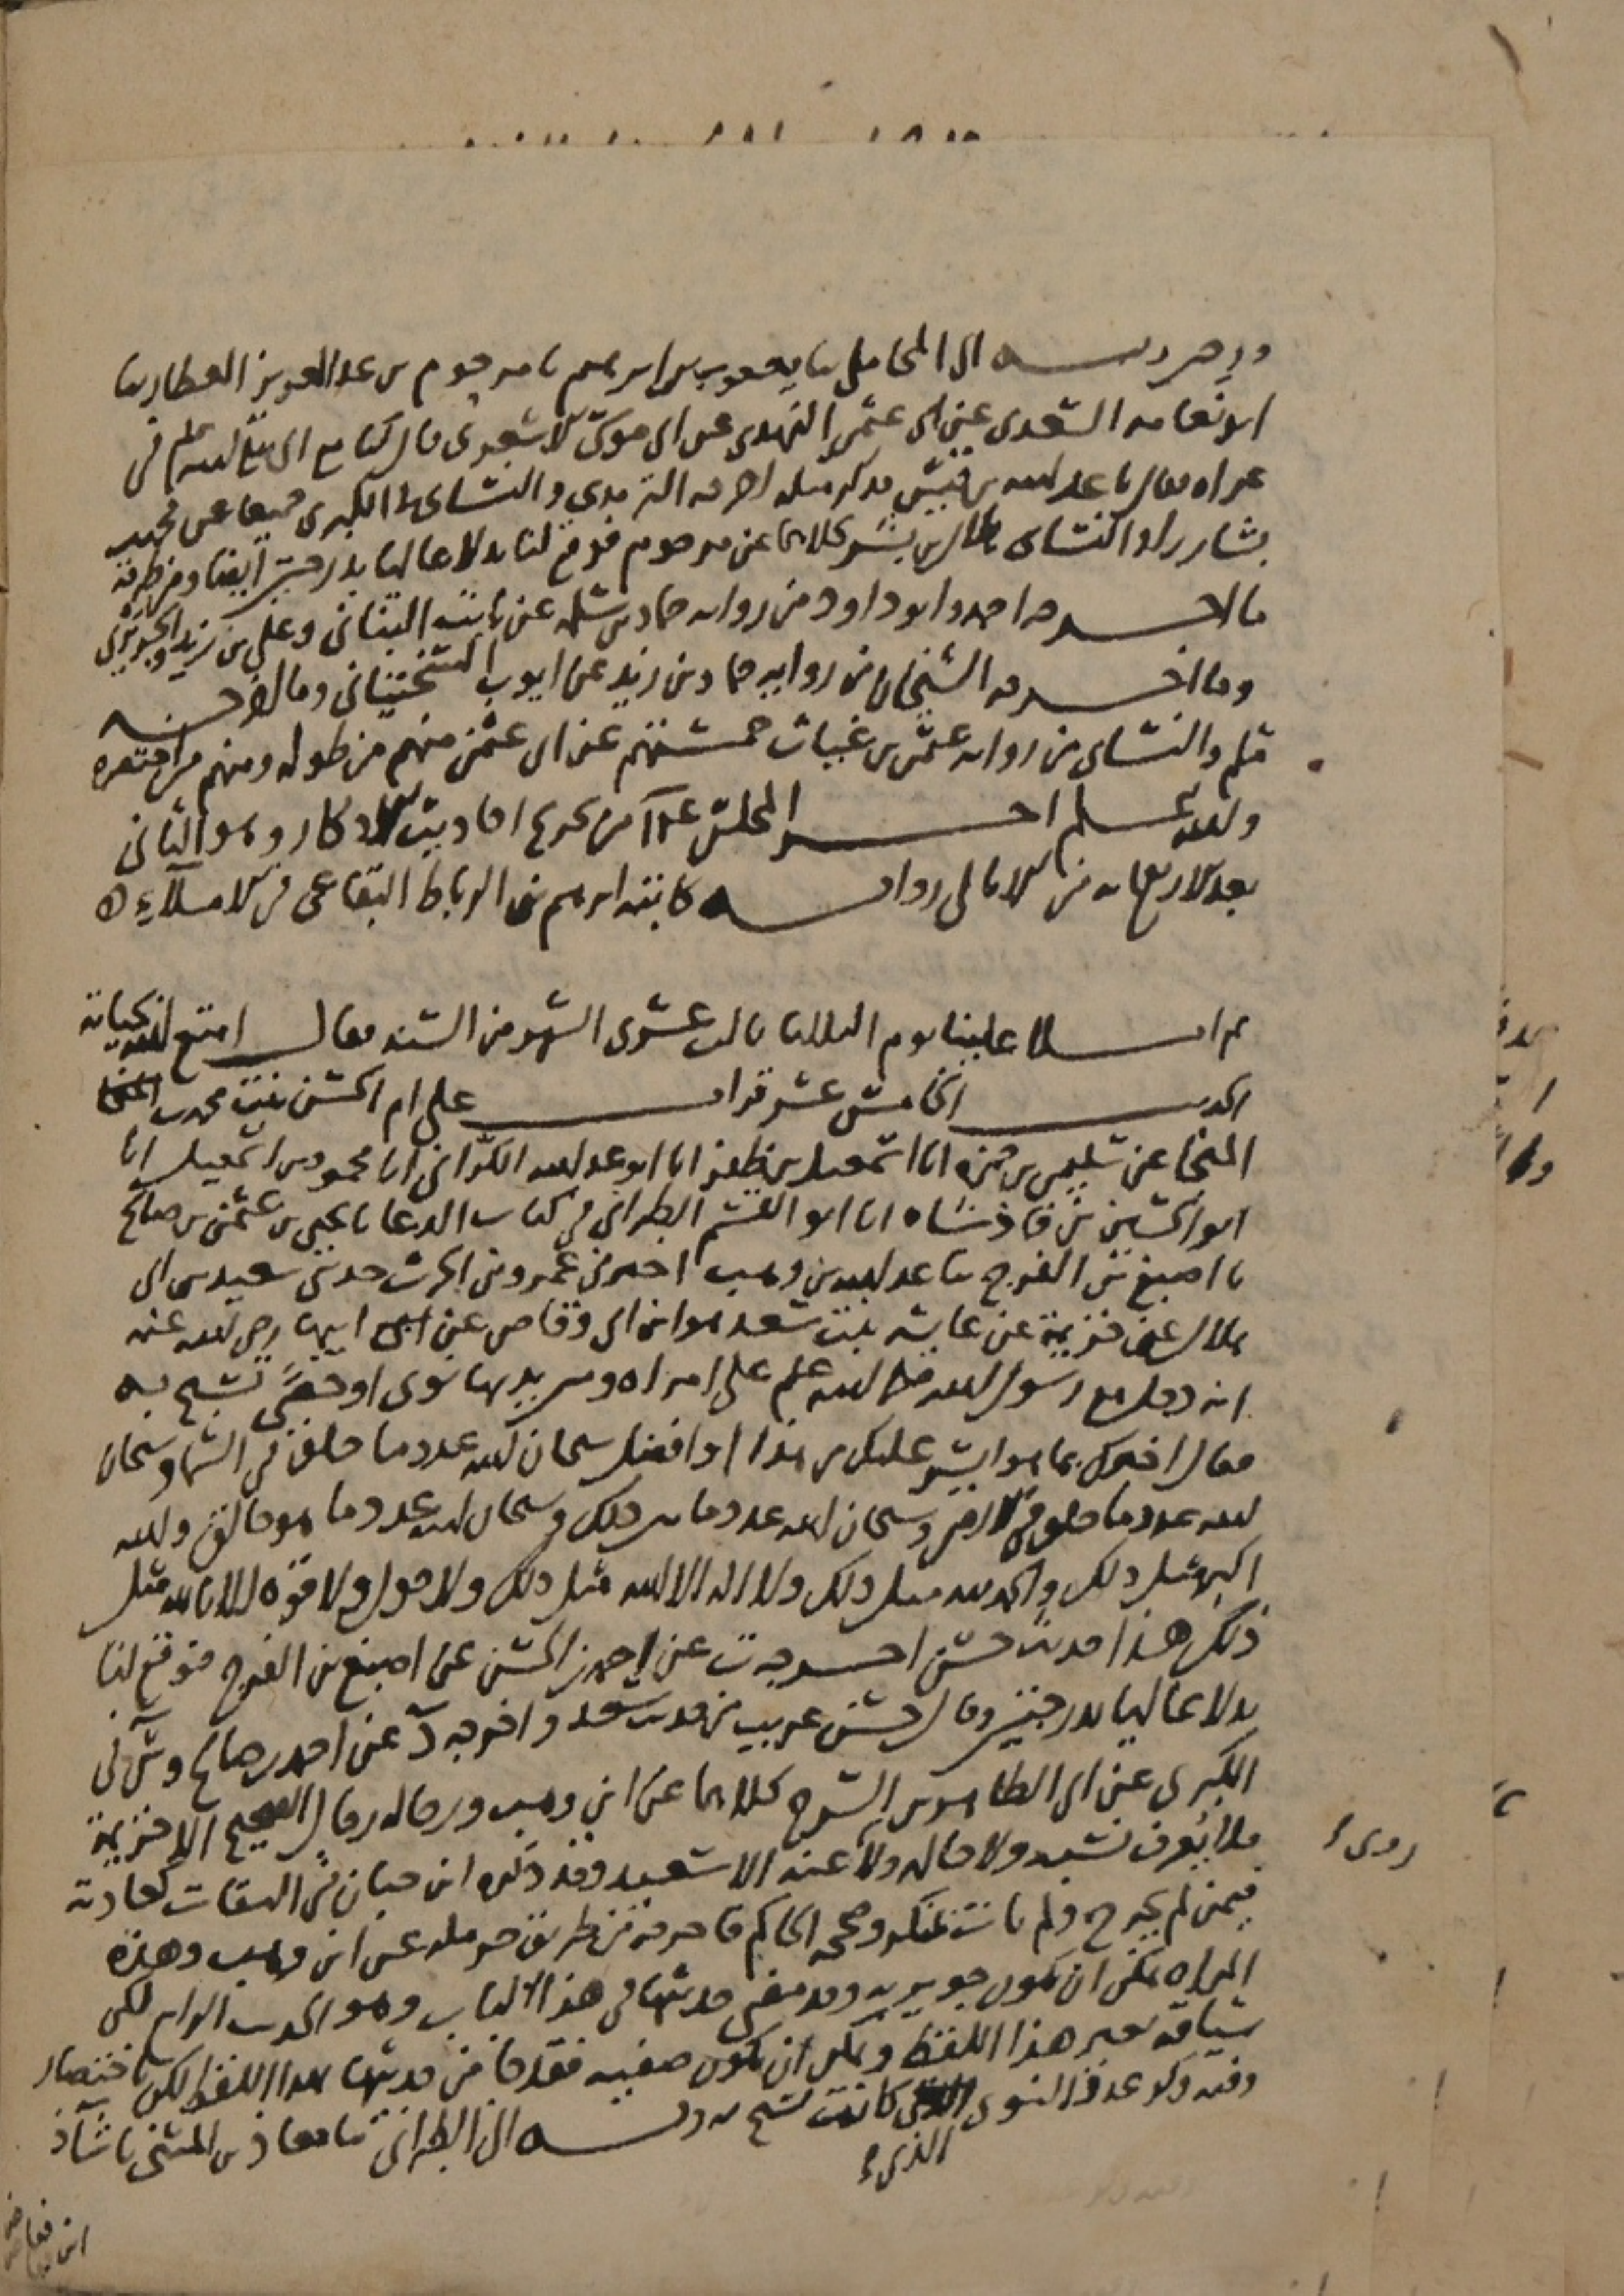 وبه الى المحاملي ثنا يعقوب بن ابراهيم ثنا مرحوم بن عبد العزيز العطار ثنا
ابو نعامه السعدي عن ابي عثمن النهدي عن ابي موسى الاشعري قال كنا مع النبي صلى الله علم في
غزاه فقال يا عبد الله بن قيس فذكر مثله اخرجه الترمذي والنسائي في الكبرى جميعا عن محمد بن
بشار زاد النسائي وهلال بن بشر كلاهما عن مرحوم فوقع لنا بدلا عاليا بدرجتين ايضا ومن طرقه
ما اخرجه احمد وابو داود من روايه حماد بن سلمه عن ثابت البناني وعلي بن زيد والجريري
وما اخرجه الشيخان من روايه حماد بن زيد عن ايوب السختياني وما اخرجه
مسلم والنسائي من روايه عثمن بن غياث خمستهم عن ابي عثمن منهم من طوله ومنهم من اختصره
والله اعلم اخر المجلس من تخريج احاديث الاذكار وهو الثاني
بعد الاربعمائه من الامالي روايه كاتبه ابرهيم بن الرباط البقاعي من الاملاء ه
ثم املا علينا يوم الثلاثا ثالث عشري الشهر من السنه فقال امتع الله بحياته
الحديث الخامس عشر قرات على ام الحسن بنت محمد بن المنجا
المنجا عن سليمن بن حمزه انا اسمعيل بن ظفر انا ابو عبد الله الكراني انا محمود بن اسمعيل انا
ابو الحسين بن فاذشاه انا ابو القسم الطبراني في كتاب الدعا ثنا يحيى بن عثمن بن صالح
ثنا اصبغ بن الفرج ثنا عبد الله بن وهب اخبرني عمرو بن الحرث حدثني سعيد بن ابي
هلال عن خزيمة عن عايشه بنت سعد هو ابن ابي وقاص عن ابيها رضي الله عنه
انه دخل مع رسول الله صلى الله علم على امراه وبين يديها نوى او حصى تسبح به
فقال اخبرك بما هو ايسر عليك من هذا او افضل سبحان الله عدد ما خلق في السما وسبحان
الله عدد ما خلق في الارض وسبحان الله عدد ما بين ذلك وسبحان الله عدد ما هو خالق والله
اكبر مثل ذلك والحمد لله مثل ذلك ولا اله الا الله مثل ذلك ولا حول ولا قوه الا بالله مثل
ذلك هذا حديث حسن اخرجه ت عن احمد بن الحسن عن اصبغ بن الفرج فوقع لنا
بدلا عاليا بدرجتين وقال حسن غريب من حديث سعد واخرجه د عن احمد بن صالح وس في
الكبرى عن ابي الطاهر بن السرح كلاهما عن ابن وهب ورجاله رجال الصحيح الا خزيمة
فلا يعرف نسبه ولا حاله ولا روى عنه الا سعيد وقد ذكره ابن حبان في الثقات كعادته
فيمن لم يجرح ولم يات بمنكر وصححه الحاكم فاخرجه من طريق حرمله عن ابن وهب وهذه
المراه يمكن ان تكون جويريه وقد مضى حديثها في هذا الباب وهو الحديث الرابع لكن
سياقه بغير هذا اللفظ ويمكن ان تكون صفيه فقد جا من حديثها بهذا اللفظ لكن باختصار
وفيه ذكر عدد النوى الذي كانت تسبح به وبه الى الطبراني ثنا معاذ بن المثنى ثنا شاذ